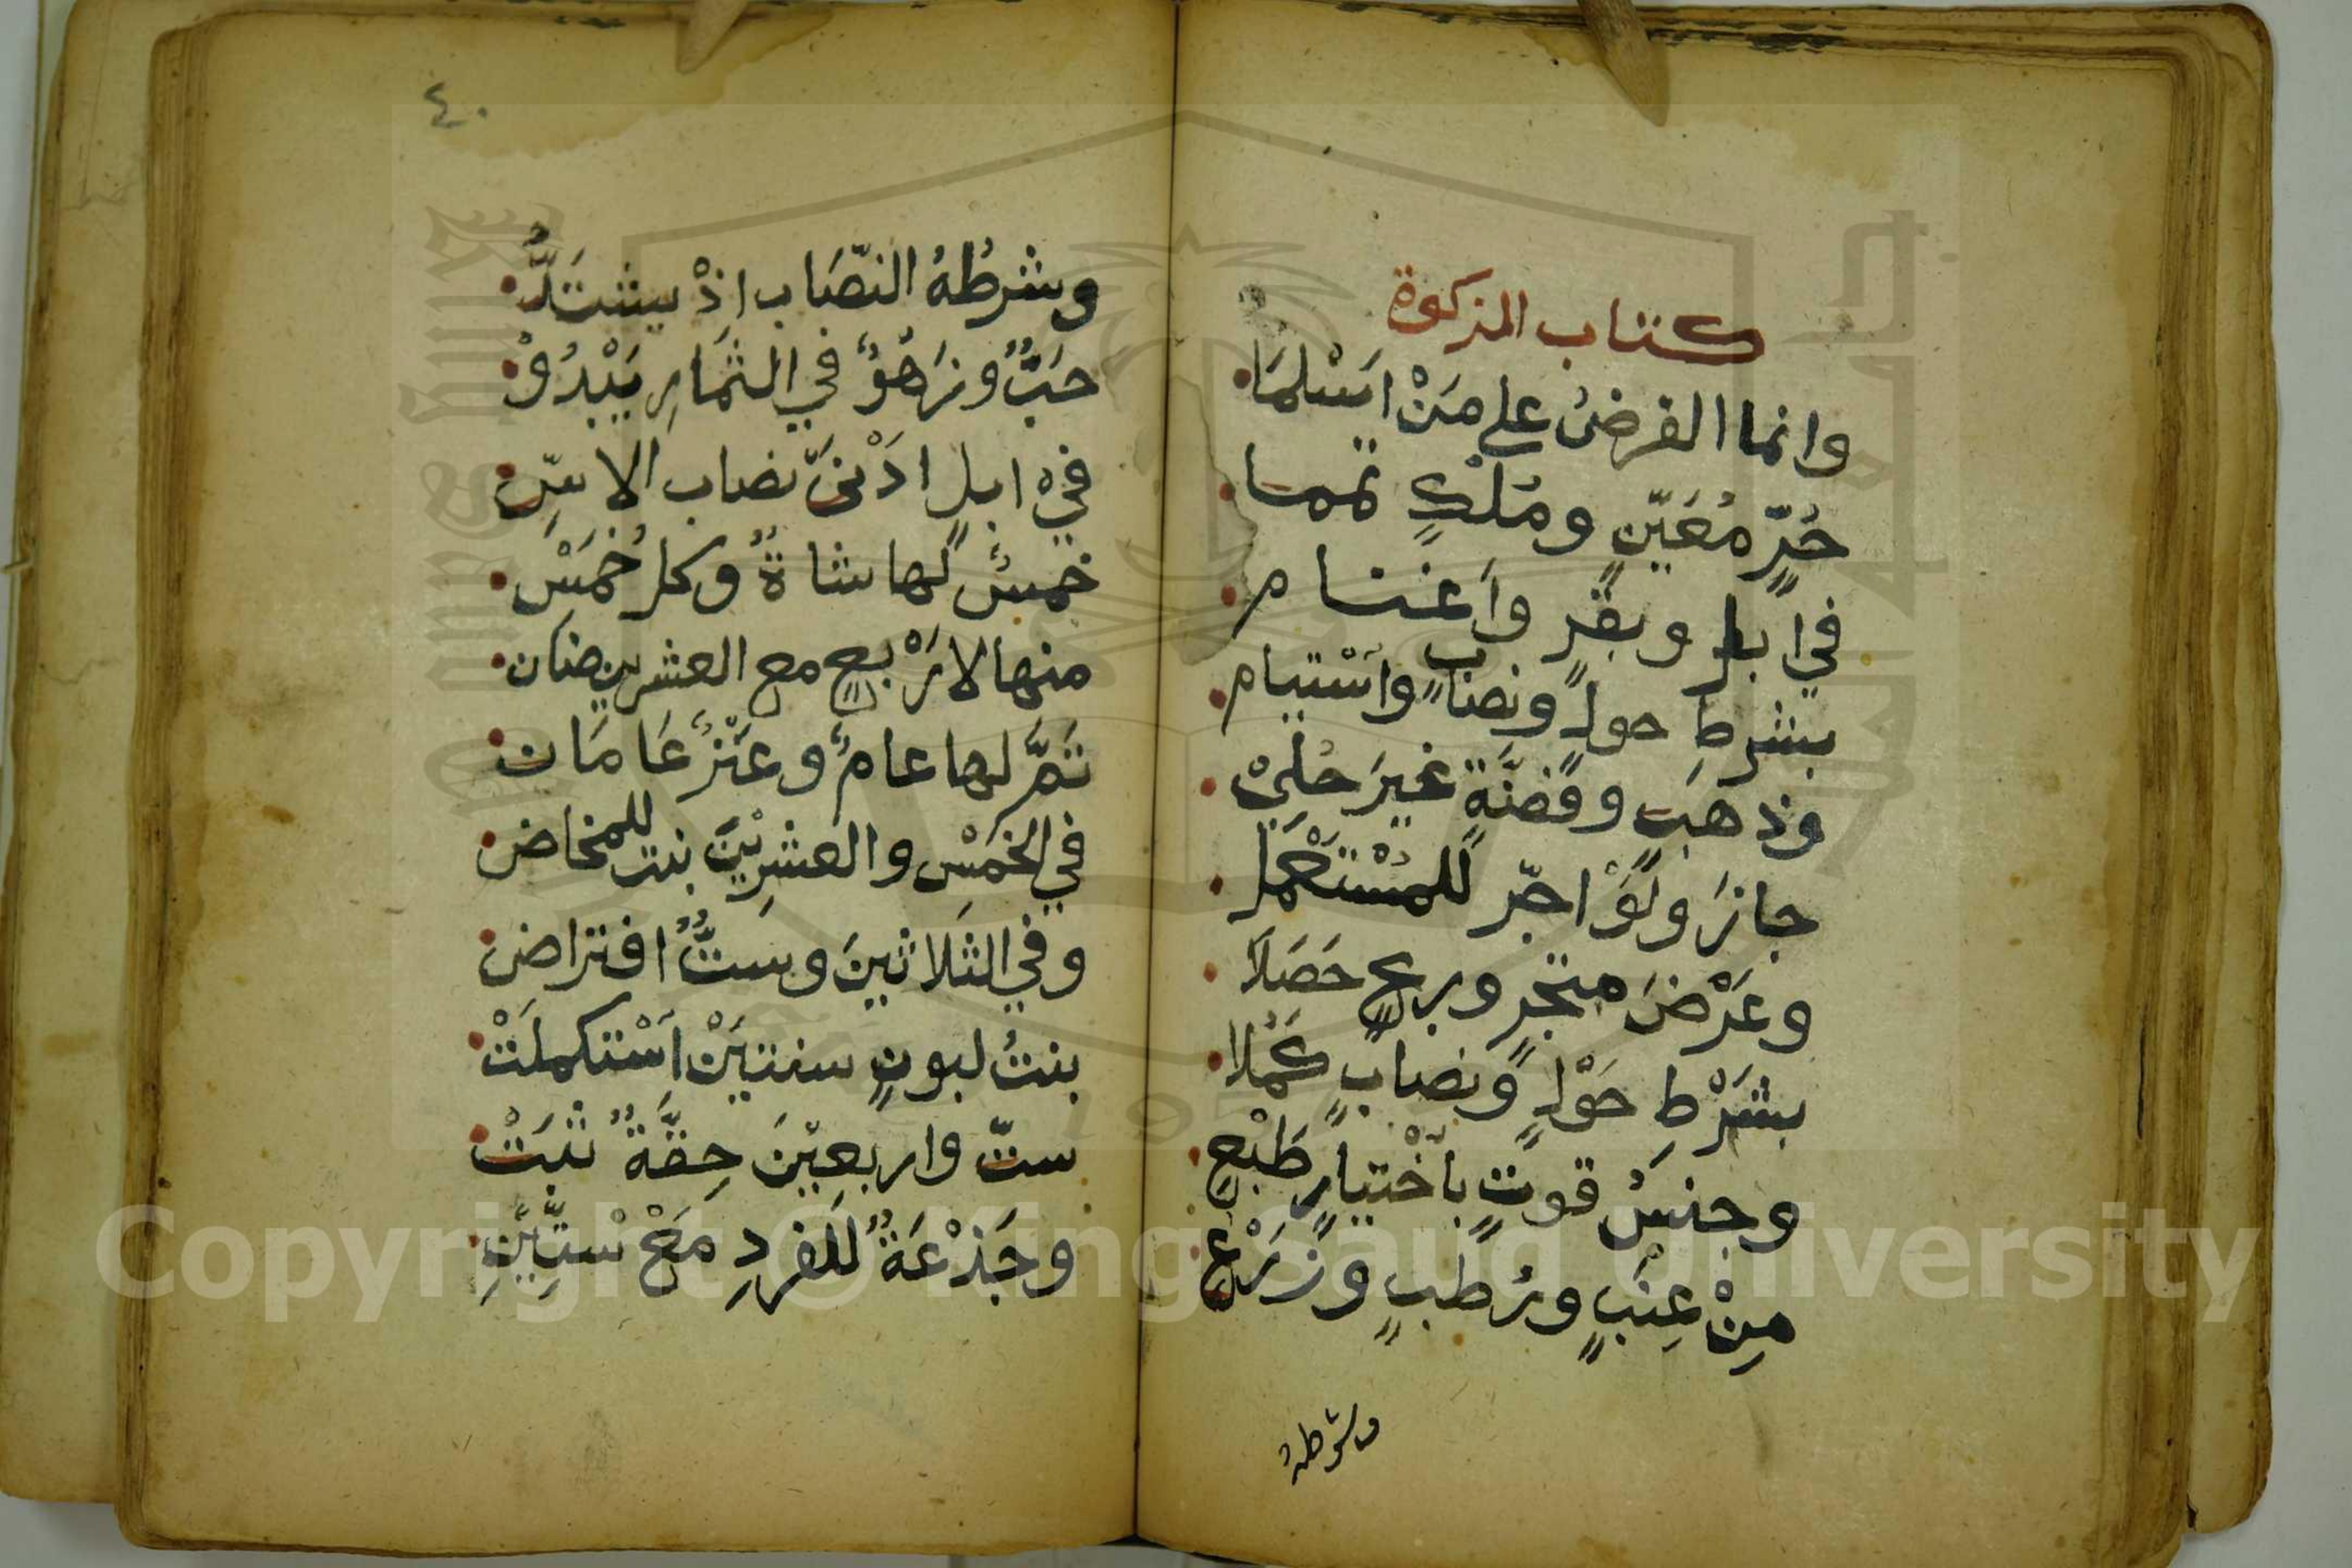 كتاب الزكوة
وانما الفرضُ على مَنْ اَسْلمَا
حُرٍّ مُعَيّنٍ ومُلْكٍ تمما
في ابل وبقرٍ واَغنام
بشرطِ حولٍ ونصابٍ واسْتيام
وذهبٍ وفضَّةٍ غيرَ حُلِيْ
جازَ ولَوْ اجّر للمُسْتَعْمَل
وعَرْضَ متجرٍ وربحٍ حَصَلَا
بشَرْطِ حَوْلٍ ونصابٍ كَمُلا
وجنسُ قوتٍ باَخْتيارِ طَبْعٍ
مِنْ عِنَبٍ ورُطَبٍ وزَرْعٍ
وشرطهُ
٤٠
وشرطُهُ النّصَاب اذْ يشتَدُّ
حَبٌّ وزَهْوٌ في الثمَارِ يَبْدُوْ
فيْ ابلٍ ادَنىَ نصاب الاسِّ
خمسٌ لها شاةٌ وكل خُمَسْ
منها لارْبعٍ مع العشرين ضان
تَمَّ لها عامٌ وعَنْزٌ عَامَان
في الخَمْسِ والعشرِيْنَ بنت للمخاض
وفي الثَلاثينَ وسَتٌّ افتراض
بنتُ لبونٍ سنتيَنْ اَسْتكملَتْ
ستّ واربعِيْنَ حِقَّةٌ ثبَتْ
وجَذْعَةٌ للفردِ مَعْ سْتِّيْنِ
Copyright © King Saud University